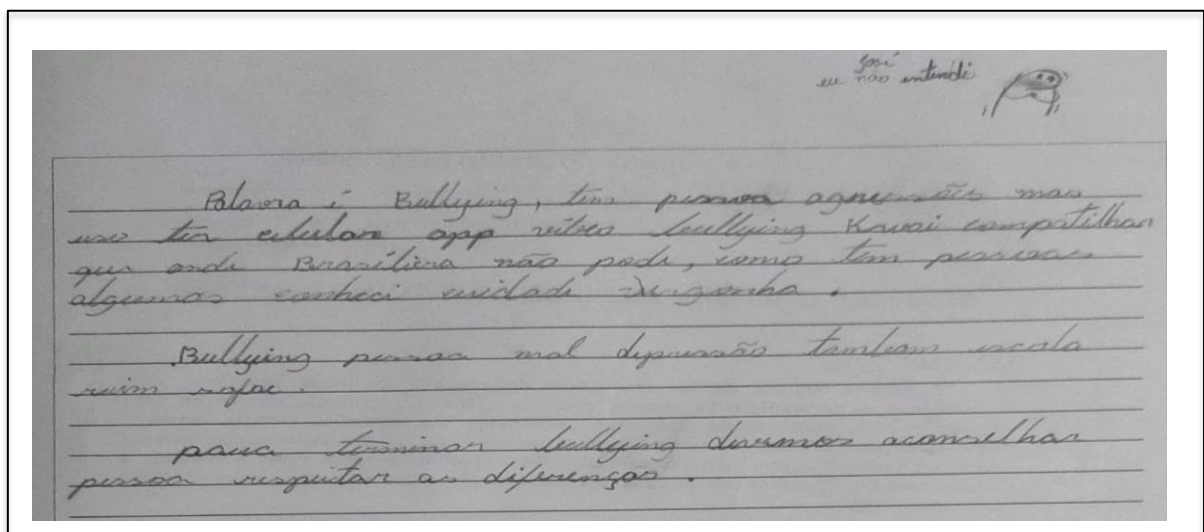 José
eu não entendi
Palavra é Bullying, tem pessoa agressões mas
uso ter celular app vítima bullying Kawai compatilhar
que onde Brasíliera não pode, como tem pessoas
algumas conheci cuidado vergonha.
Bullying pessoa mal depressão tambem escola
ruim sofre.
para terminar bullying devemos aconselhar
pessoa respeitar as diferenças.